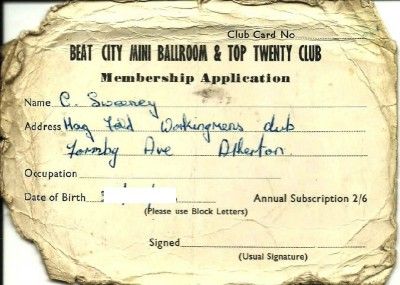 Club Card No
BEAT CITY MINI BALLROOM & TOP TWENTY CLUB
Membership Application
Name C. Sweeney
Address Hag Fold Workingmens club
Formby Ave Atherton
Occupation
Date of Birth Annual Subscription 2/6
(Please use Block Letters)
Signed
(Usual Signature)